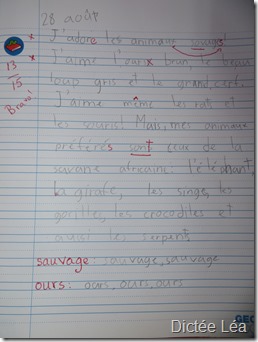 28 août
J'adore les animaux sauvages!
J'aime l'ourix brun, le beau
loup gris et le grand cerf.
J'aime même les rats et
les souris! Mais, mes animaux
préférés sont ceux de la
savane africaine: l'éléphant,
la girafe, les singe, les
gorilles, les crocodiles et
aussi les serpents.
sauvage: sauvage, sauvage
ours: ours, ours, ours
13
15
Bravo!
GEO
Dictée Léa